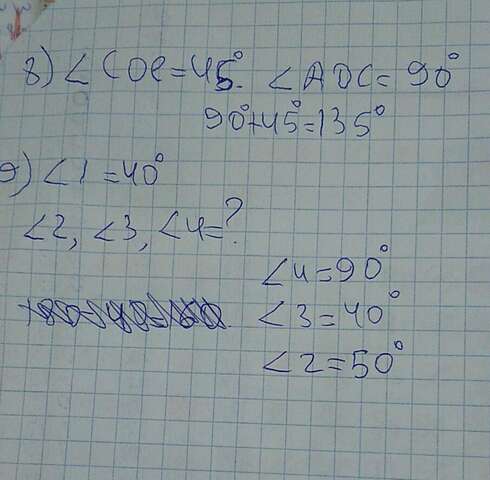 8) ∠COE=45°. ∠AOC=90°
90°+45°=135°
9) ∠1=40°
∠2, ∠3, ∠4=?
∠4=90°
∠3=40°
∠2=50°